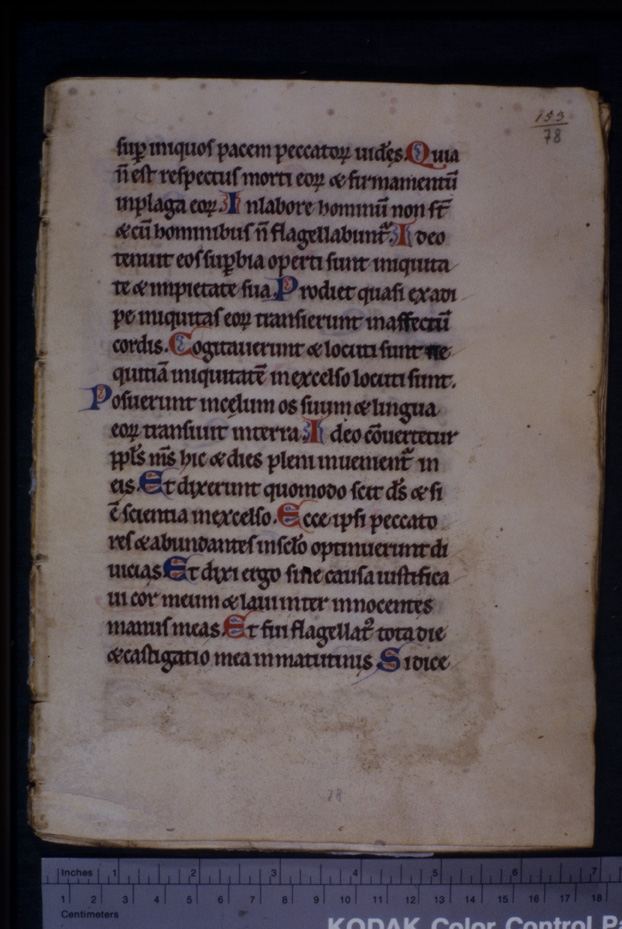 153
78
sup iniquos pacem peccatoꝝ uidẽs. Quia
ñ est respectus morti eoꝝ & firmamentũ
inplaga eoꝝ. In labore hominũ non st̃
& cũ hominibus ñ flagellabunt᷑. Ideo
tenuit eos supbia operti sunt iniquita
te & impietate sua. Prodiet quasi exadi
pe iniquitas eoꝝ transierunt inaffectũ
cordis. Cogitauerunt & locuti sunt ne
quitiã iniquitatẽ inexcelso locuti sunt.
Posuerunt incelum os suum & lingua
eoꝝ transiuit interra. Ideo cõuertetur
ppl̃s m̃s hic & dies pleni inuenient᷑ in
eis. Et dixerunt quomodo scit d̃s & si
ẽ scientia inexcelso. Ecce ipsi peccato
res & abundantes insc̃lo optinuerunt di
uicias. Et dixi ergo sine causa iustifica
ui cor meum & laui inter innocentes
manus meas. Et fui flagellat᷒ tota die
& castigatio mea inmatutinis. Si dice
78
Inches 1 2 3 4 5 6 7
1 2 3 4 5 6 7 8 9 10 11 12 13 14 15 16 17 18
Centimeters
KODAK Color Control